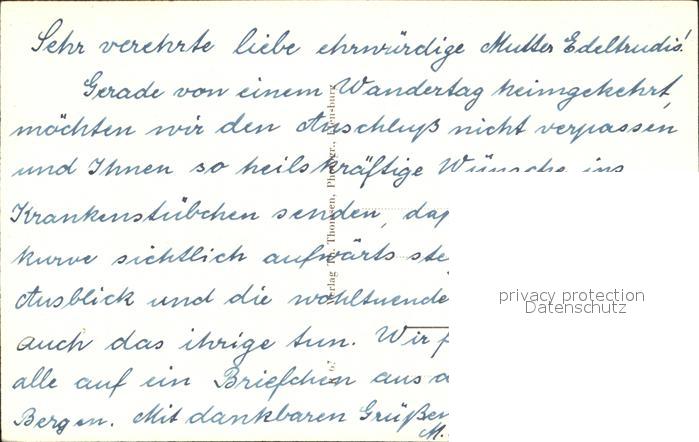 Sehr verehrte liebe ehrwürdige Mutter Edeltrudis!
Gerade von einem Wandertag heimgekehrt,
möchten wir den Anschluß nicht verpassen
und Ihnen so heilskräftige Wünsche ins
Krankenstübchen senden, daß
kurve sichtlich aufwärts
Ausblick und die wohltuende
auch das ihrige tun. Wir
alle auf ein Briefchen aus
Bergen. Mit dankbaren Grüßen
M.
Verlag Th. Thomsen, Photogr., Flensburg
privacy protection
Datenschutz